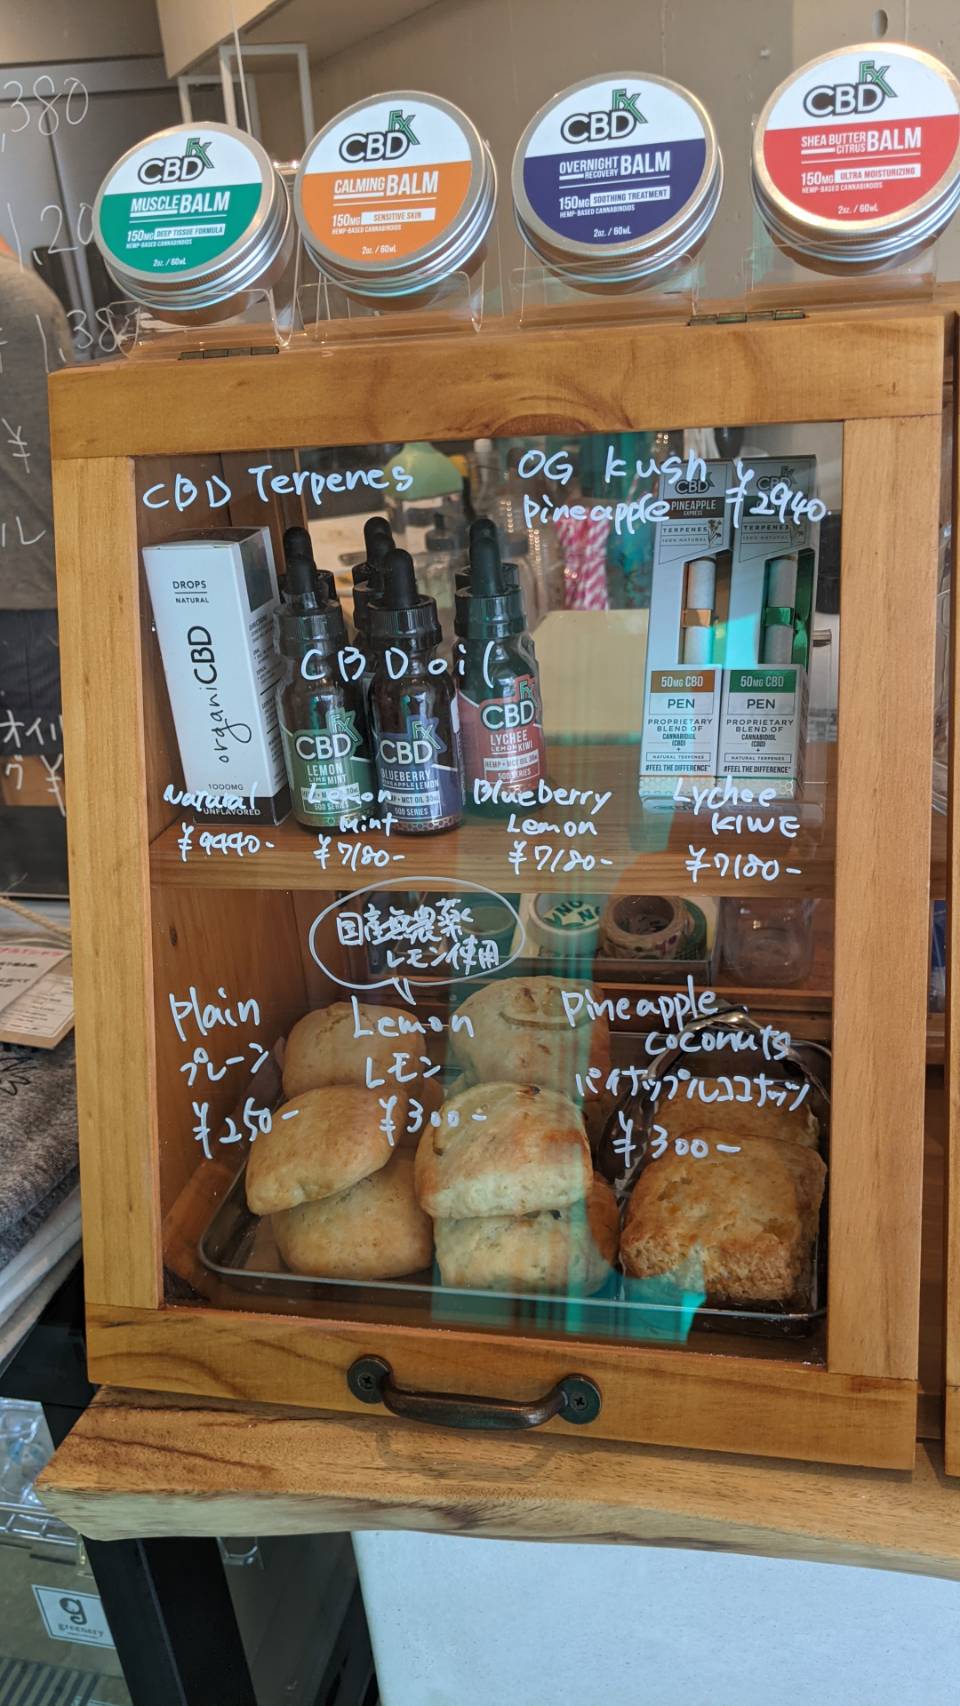 ,380
1,20
1,38
¥
CBD FX
MUSCLE BALM
150MG DEEP TISSUE FORMULA
HEMP-BASED CANNABINOIDS
2oz. / 60mL
CBD FX
CALMING BALM
150MG SENSITIVE SKIN
HEMP-BASED CANNABINOIDS
2oz. / 60mL
CBD FX
OVERNIGHT RECOVERY BALM
150MG SOOTHING TREATMENT
HEMP-BASED CANNABINOIDS
2oz. / 60mL
CBD FX
SHEA BUTTER CITRUS BALM
150MG ULTRA MOISTURIZING
HEMP-BASED CANNABINOIDS
2oz. / 60mL
CBD Terpenes
OG Kush
Pineapple ¥2940.
DROPS
NATURAL
organiCBD
1000MG
UNFLAVORED
CBD oil
CBD FX
LEMON
LIME MINT
500 SERIES
CBD FX
BLUEBERRY
PINEAPPLE LEMON
HEMP + MCT OIL 30ML
500 SERIES
CBD FX
LYCHEE
LEMON KIWI
HEMP + MCT OIL 30ML
500 SERIES
CBD
PINEAPPLE
EXPRESS
TERPENES
100% NATURAL
50MG CBD
PEN
PROPRIETARY
BLEND OF
CANNABIDIOL
(CBD)
+
NATURAL TERPENES
#FEELTHEDIFFERENCE
CBD
TERPENES
100% NATURAL
50MG CBD
PEN
PROPRIETARY
BLEND OF
CANNABIDIOL
(CBD)
+
NATURAL TERPENES
#FEEL THE DIFFERENCE
Natural
¥9440-
Lemon
Mint
¥7180-
Blueberry
Lemon
¥7180-
Lychee
KIWE
¥7180-
国産無農薬
レモン使用
Plain
プレーン
¥250-
Lemon
レモン
¥300-
Pineapple
coconuts
パイナップルココナッツ
¥300-
オイル
g
greenery